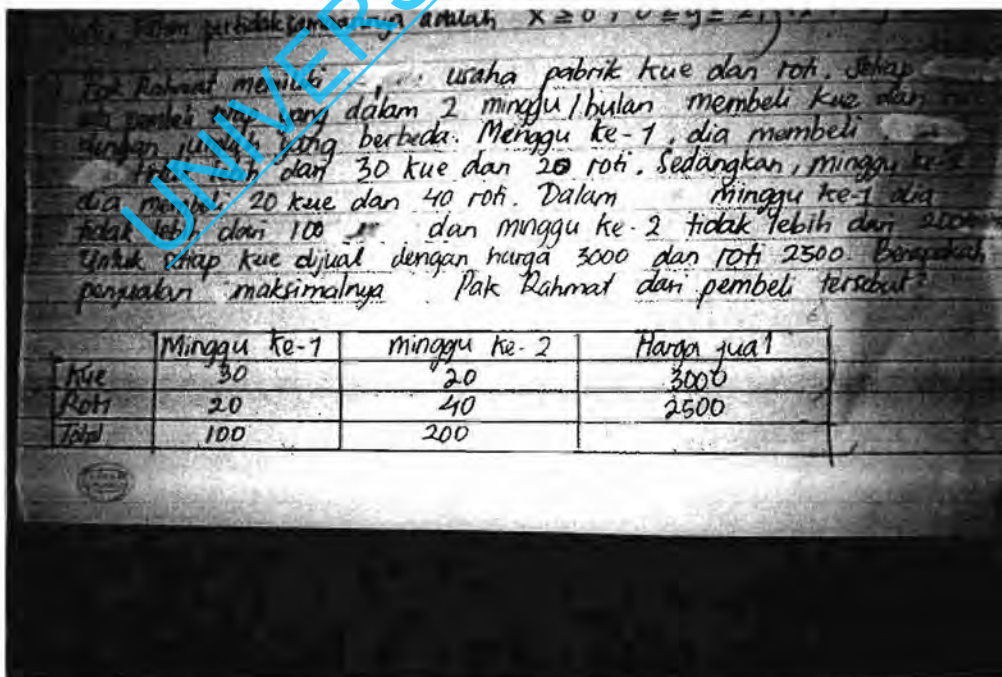 pertidaksamaannya adalah x ≥ 0 ; 0 ≤ y ≤ 2
Pak Rahmat memiliki usaha pabrik kue dan roti. Setiap
yang dalam 2 minggu / bulan membeli kue dan
dengan jumlah yang berbeda. Menggu ke-1, dia membeli
dari 30 kue dan 20 roti. Sedangkan, minggu ke-2
dia 20 kue dan 40 roti. Dalam minggu ke-1 dia
tidak lebih dari 100 dan minggu ke-2 tidak lebih dari 200
Untuk setiap kue dijual dengan harga 3000 dan roti 2500. Berapakah
penjualan maksimalnya Pak Rahmat dari pembeli tersebut?
Minggu ke-1 minggu ke-2 Harga jual
Kue 30 20 3000
Roti 20 40 2500
Total 100 200
UNIVERS